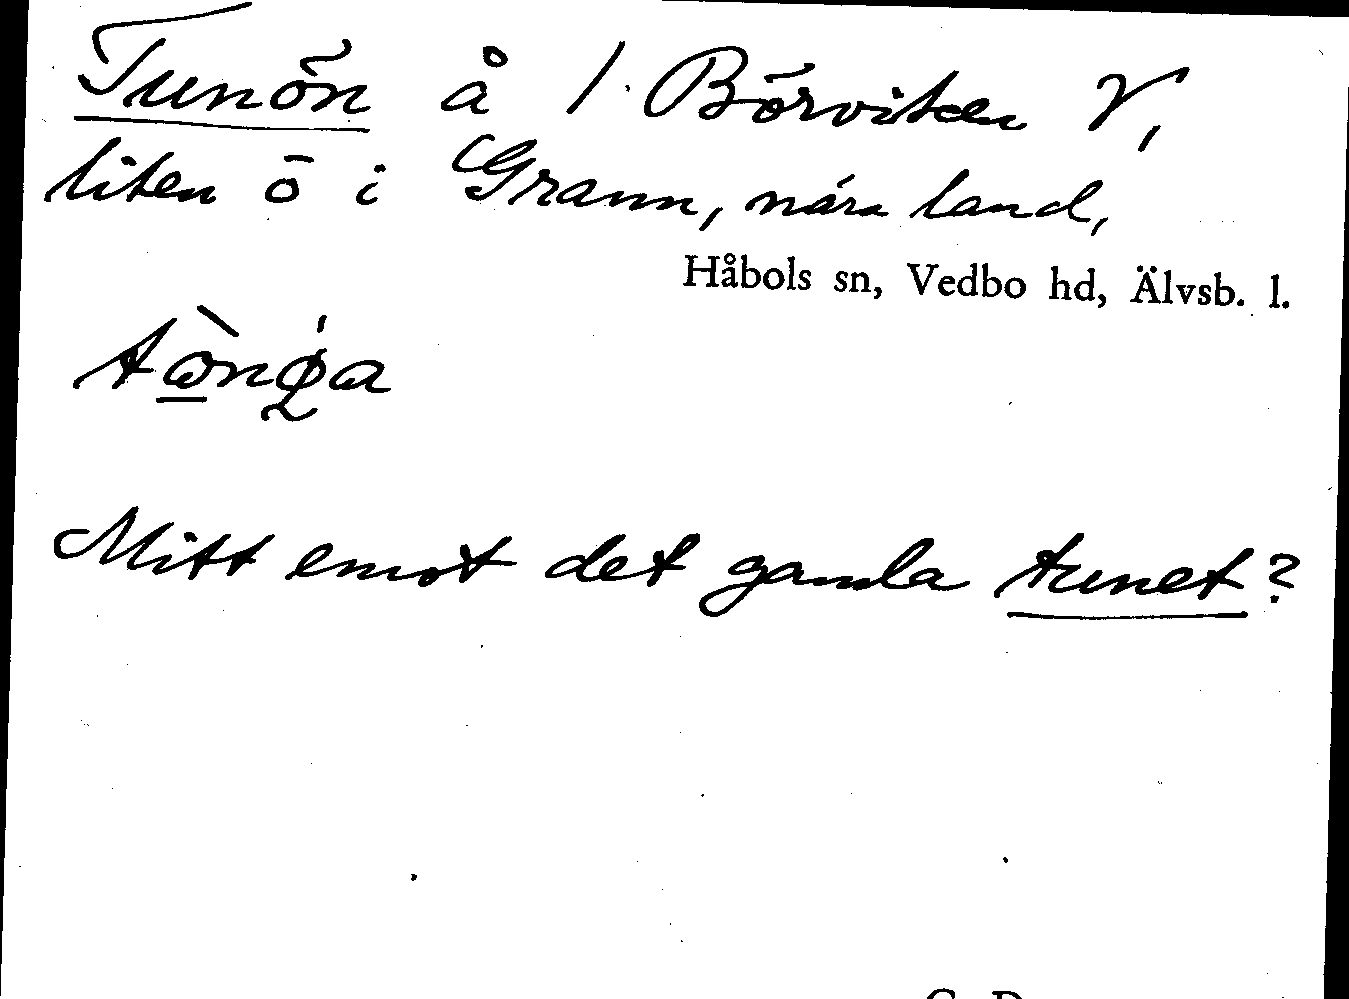 Tunön å 1 Börviken V,
liten ö i Grann, nära land,
Håbols sn, Vedbo hd, Älvsb. l.
Mitt emot det gamla tunet?